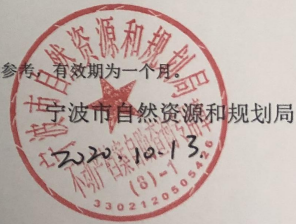 参考，有效期为一个月。
宁波市自然资源和规划局
2020.10.13
宁波市自然资源和规划局
不动产档案自助查询专用章
(8)-1
3302120505426